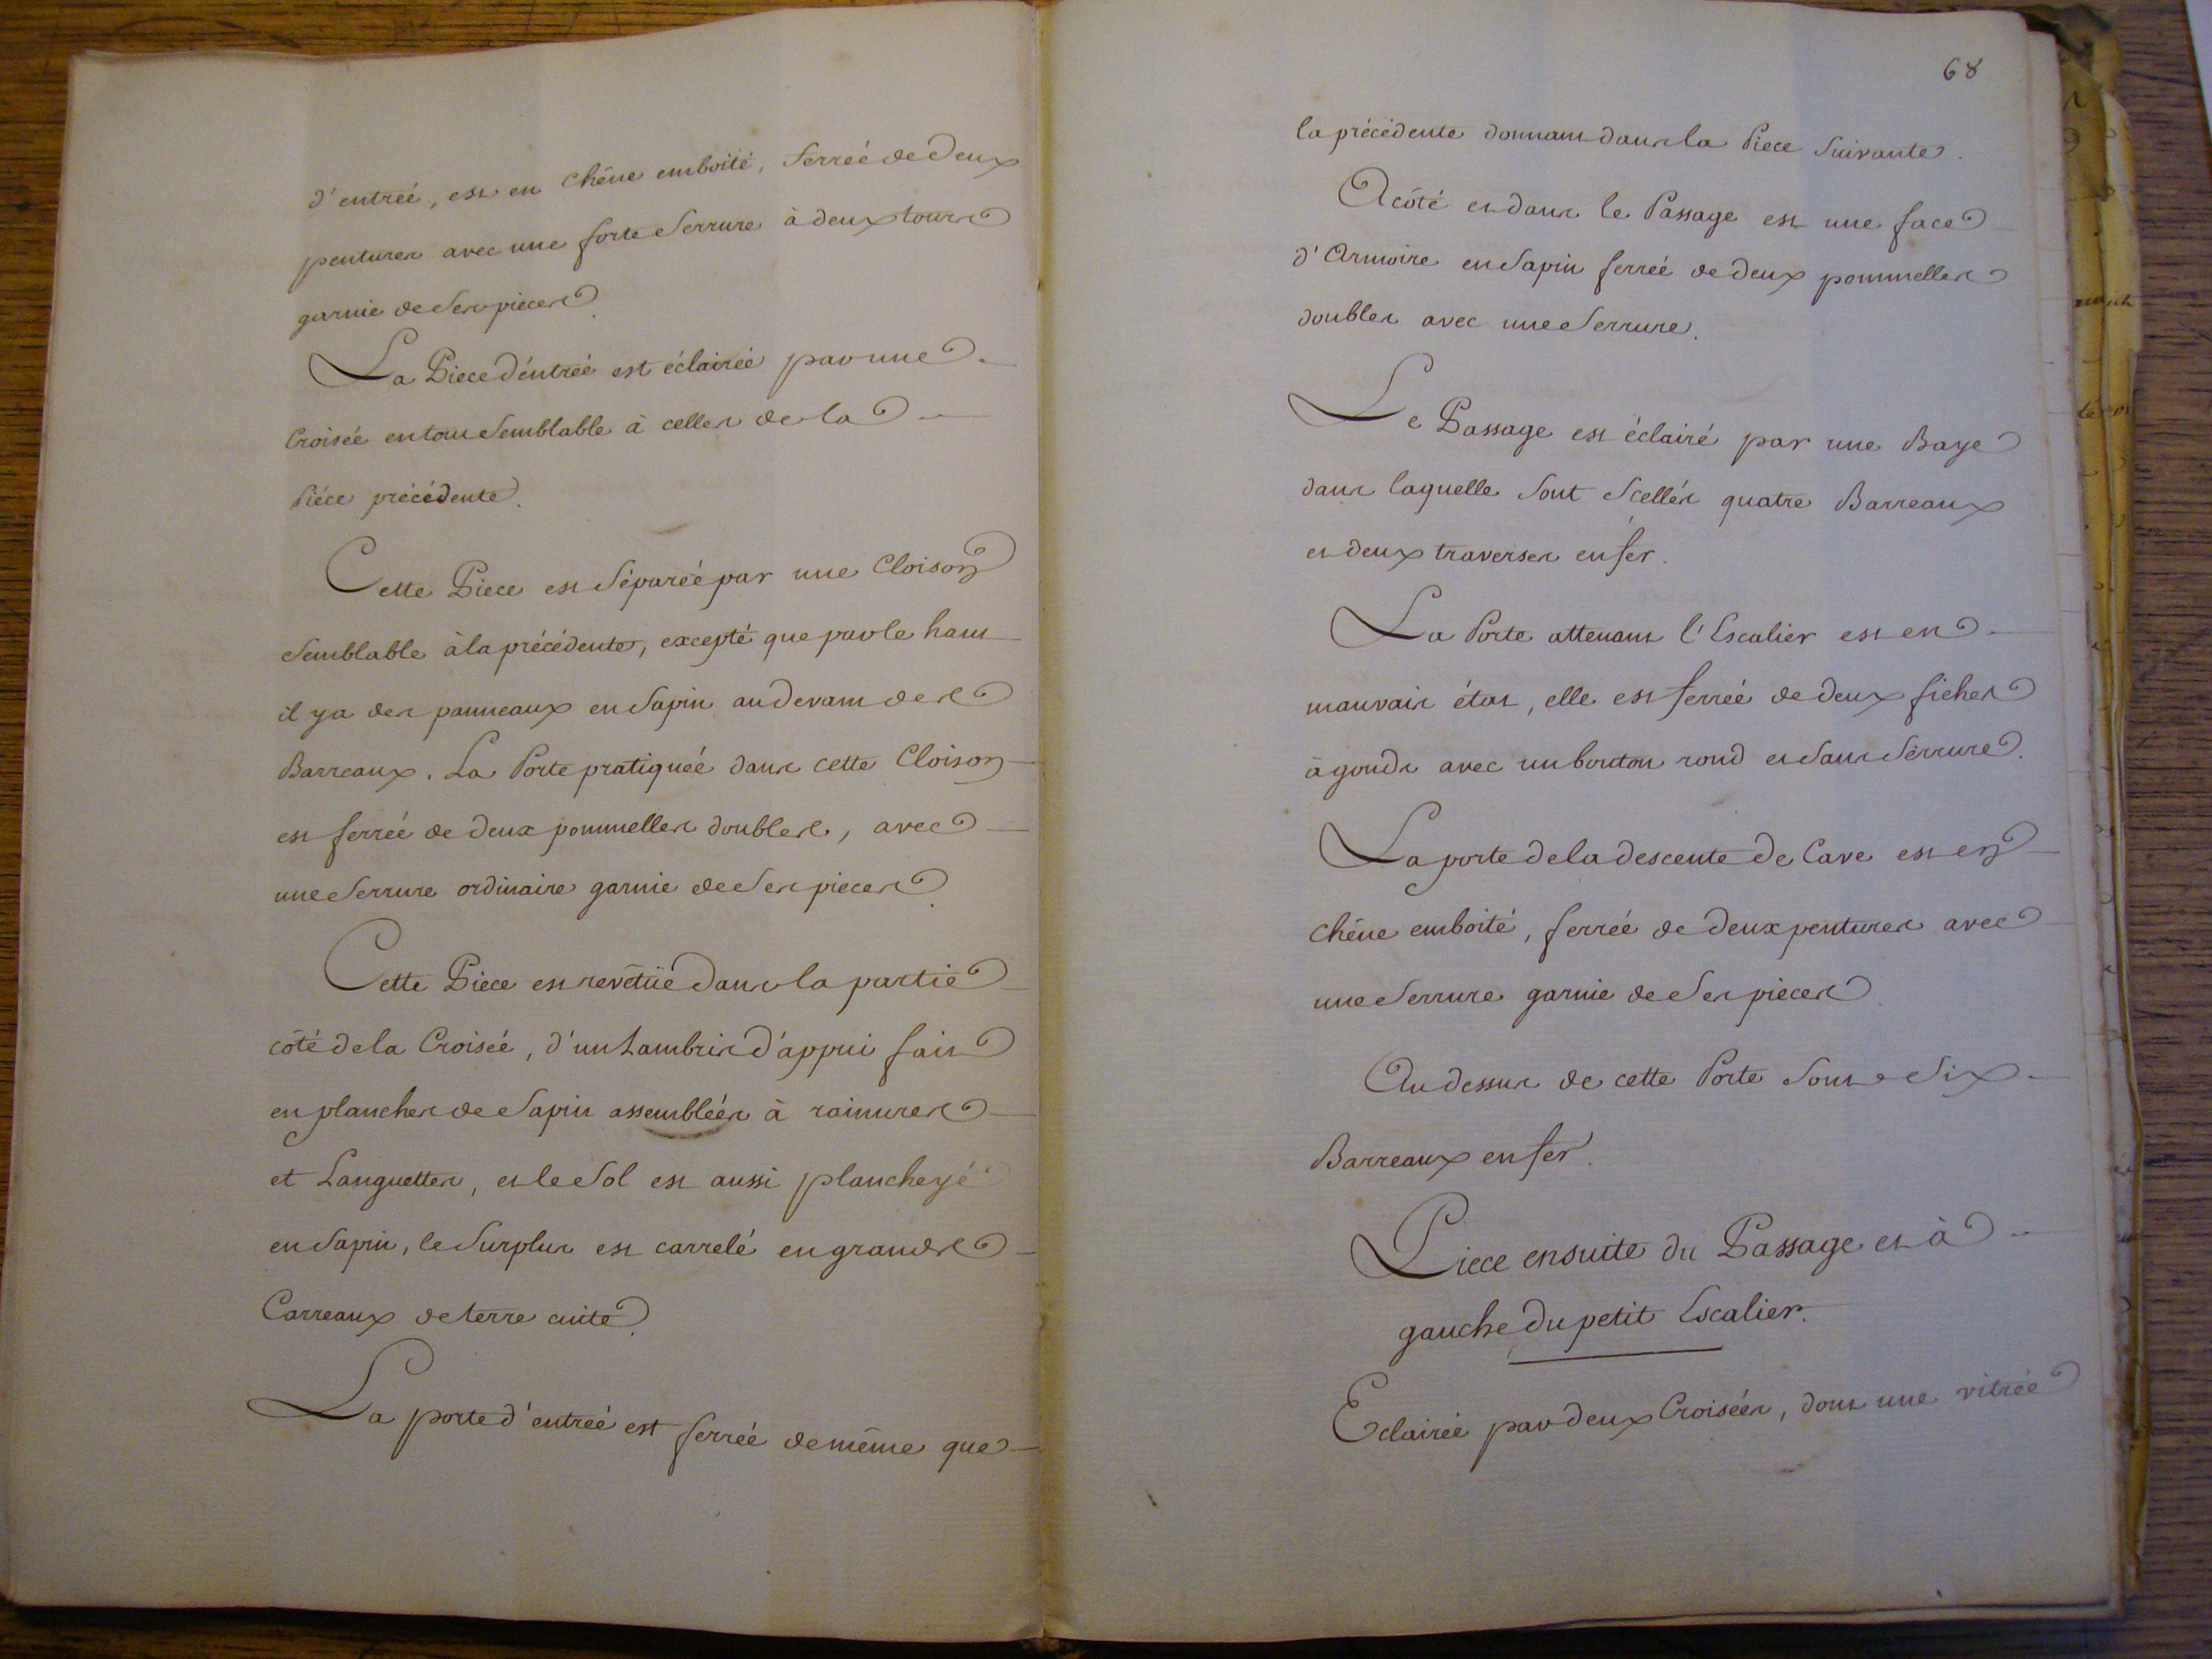 d'entreé, est en Chêne emboité, ferreé de deux
pentures avec une forte Serrure à deux tours
garnie de Ses pieces.
La Piece d'éntreé est éclaireé par une
Croisée en tout Semblable à celles de la
Piéce précédente.
Cette Piece est Séparéé par une Cloison
Semblable à la précédente, excepté que par le haut
il y a des panneaux en Sapin au devant des
Barreaux. La Porte pratiqueé dans cette Cloison
est ferreé de deux pommelles doubles, avec
une Serrure ordinaire garnie de Ses pieces.
Cette Piece est revêtüe dans la partie
côté de la Croiseé, d'un Lambris d'appui fait
en planches de Sapin assembléés à rainures
et Languettes, et le Sol est aussi plancheyé
en Sapin, le Surplus est carrelé en grands
Carreaux de terre cuite.
La porte d'entreé est ferreé de même que
68
la précédente donnant dans la Piece Suivante.
A côté et dans le Passage est une face
d'Armoire en Sapin ferreé de deux pommelles
doubles avec une Serrure.
Le Passage est éclairé par une Baye
dans laquelle Sont Scellés quatre Barreaux
et deux traverses en fer.
La Porte attenant l'Escalier est en
mauvais état, elle est ferreé de deux fiches
à gonds avec un bouton rond et Sans Serrure.
La porte de la descente de Cave est en
Chêne emboité, ferrée de deux pentures avec
une Serrure garnie de Ses pieces.
Au dessus de cette Porte Sont Six
Barreaux en fer.
Piece ensuite du Passage et à
gauche du petit Escalier.
Eclaireé par deux Croiseés, dont une vitreé